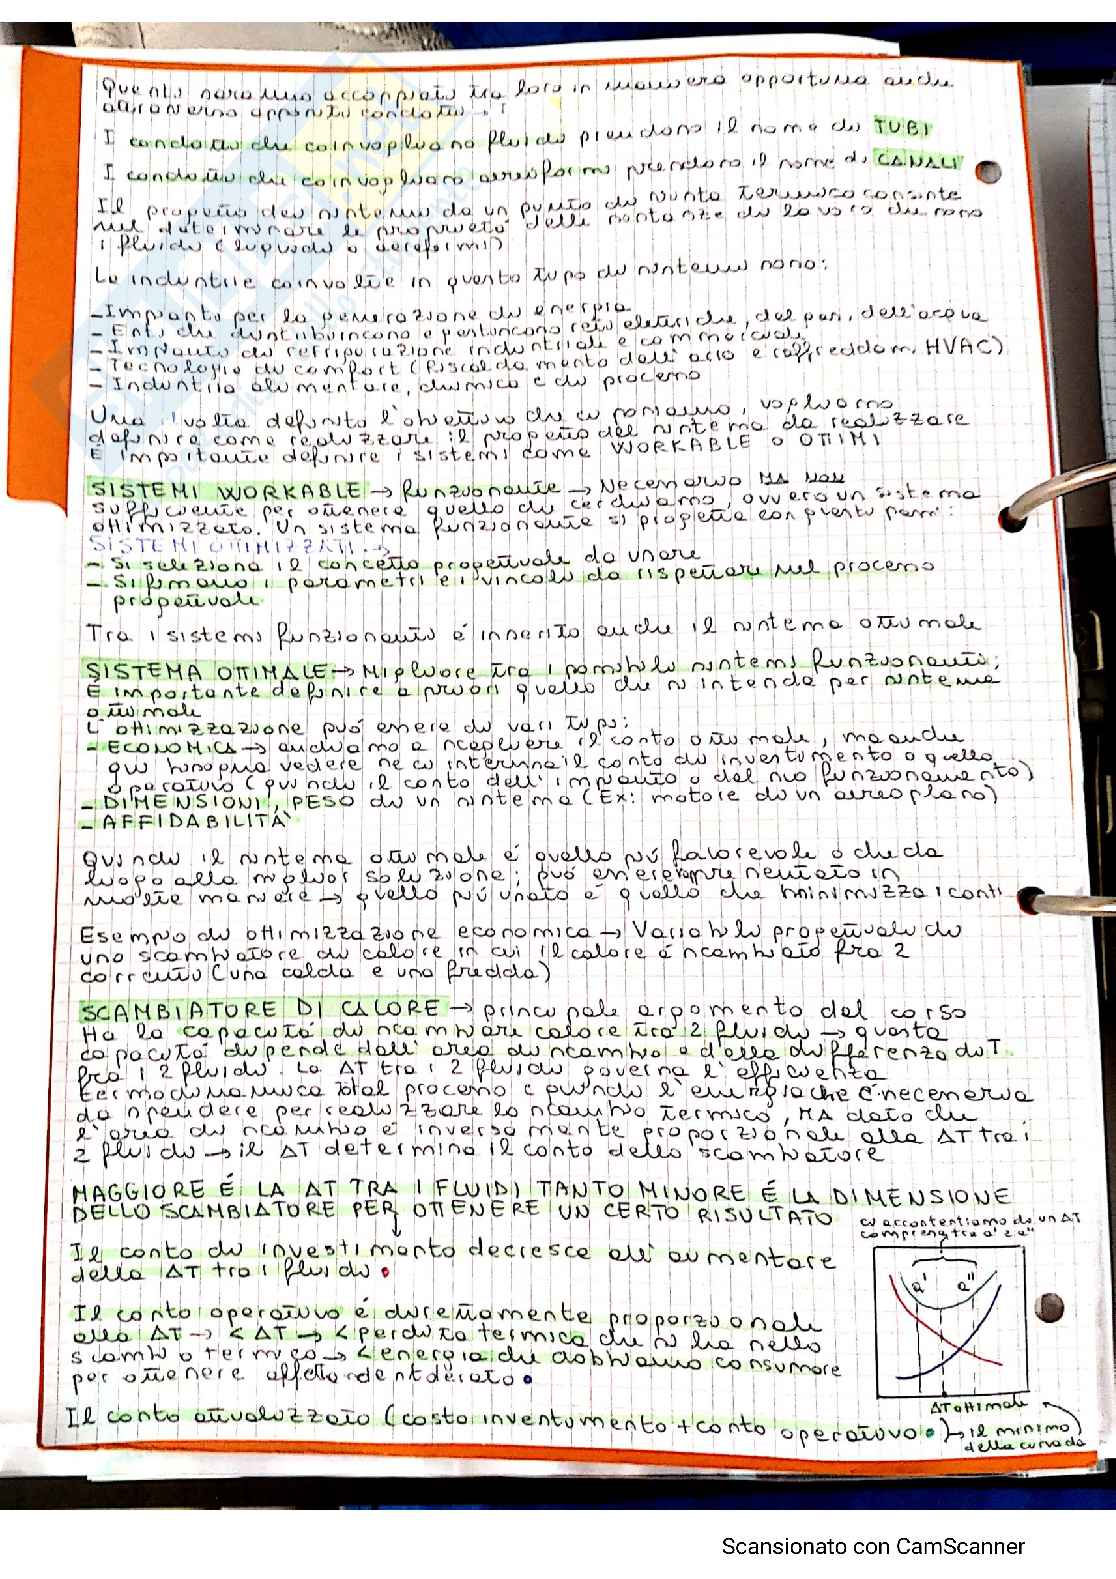 Questi saranno accoppiati tra loro in maniera opportuna anche
attraverso appositi condotti.
I condotti che coinvolgono fluidi prendono il nome di TUBI
I condotti che coinvolgono aereoformi prendono il nome di CANALI
Il progetto dei sistemi da un punto di vista termico consiste
nel determinare le proprietà delle sostanze di lavoro che sono
i fluidi (liquidi o aereiformi)
Le industrie coinvolte in questo tipo di sistemi sono:
- Impianto per la generazione di energia
- Enti che distribuiscono e gestiscono reti elettriche, del gas, dell'acqua
- Impianti di refrigerazione industriali e commerciali
- Tecnologie di comfort (Riscaldamento dell'aria e raffreddam. HVAC)
- Industria alimentare, chimica e di processo
Una volta definito l'obiettivo che ci poniamo, vogliamo
definire come realizzare il progetto del sistema da realizzare
È importante definire i sistemi come WORKABLE o OTTIMI
SISTEMI WORKABLE → Funzionante → Necessario MA NON
sufficiente per ottenere quello che cerchiamo, ovvero un sistema
ottimizzato. Un sistema funzionante si progetta con questi passi:
SISTEMI OTTIMIZZATI →
- Si seleziona il concetto progettuale da usare
- Si fissano i parametri e i vincoli da rispettare nel processo
progettuale
Tra i sistemi funzionanti é inserito anche il sistema ottimale
SISTEMA OTTIMALE → Migliore tra i possibili sistemi funzionanti;
É importante definire a priori quello che si intende per sistema
ottimale
L'ottimizzazione può essere di vari tipi:
- ECONOMICA → andiamo a scegliere il costo ottimale, ma anche
qui bisogna vedere se ci interessa il costo di investimento o quello
operativo (quindi il costo dell'impianto o del suo funzionamento)
- DIMENSIONI, PESO di un sistema (Ex: motore di un aereoplano)
- AFFIDABILITÀ
Quindi il sistema ottimale é quello più favorevole o che da
luogo alla miglior soluzione; può essere rappresentato in
molte maniere → quello più usato é quello che minimizza i costi
Esempio di ottimizzazione economica → Variabile progettuale di
uno scambiatore di calore in cui il calore é scambiato fra 2
correnti (una calda e una fredda)
SCAMBIATORE DI CALORE → principale argomento del corso
Ha la capacità di scambiare calore tra 2 fluidi → questa
capacità dipende dall'area di scambio e dalla differenza di T
fra i 2 fluidi. La ΔT tra i 2 fluidi governa l'efficienza
termodinamica del processo e quindi l'energia che é necessaria
da spendere per realizzare lo scambio termico, MA dato che
l'area di scambio é inversamente proporzionale alla ΔT tra i
2 fluidi → il ΔT determina il costo dello scambiatore
MAGGIORE É LA ΔT TRA I FLUIDI TANTO MINORE É LA DIMENSIONE
DELLO SCAMBIATORE PER OTTENERE UN CERTO RISULTATO
ci accontentiamo di un ΔT
compreso tra a' e a"
Il costo di investimento decresce all'aumentare
della ΔT tra i fluidi
a' a"
Il costo operativo é direttamente proporzionale
alla ΔT → < ΔT → < perdita termica che si ha nello
scambio termico → < energia che dobbiamo consumare
per ottenere effetto desiderato
ΔT ottimale
Il costo attualizzato (costo investimento + costo operativo) → il minimo
della curva da
Scansionato con CamScanner